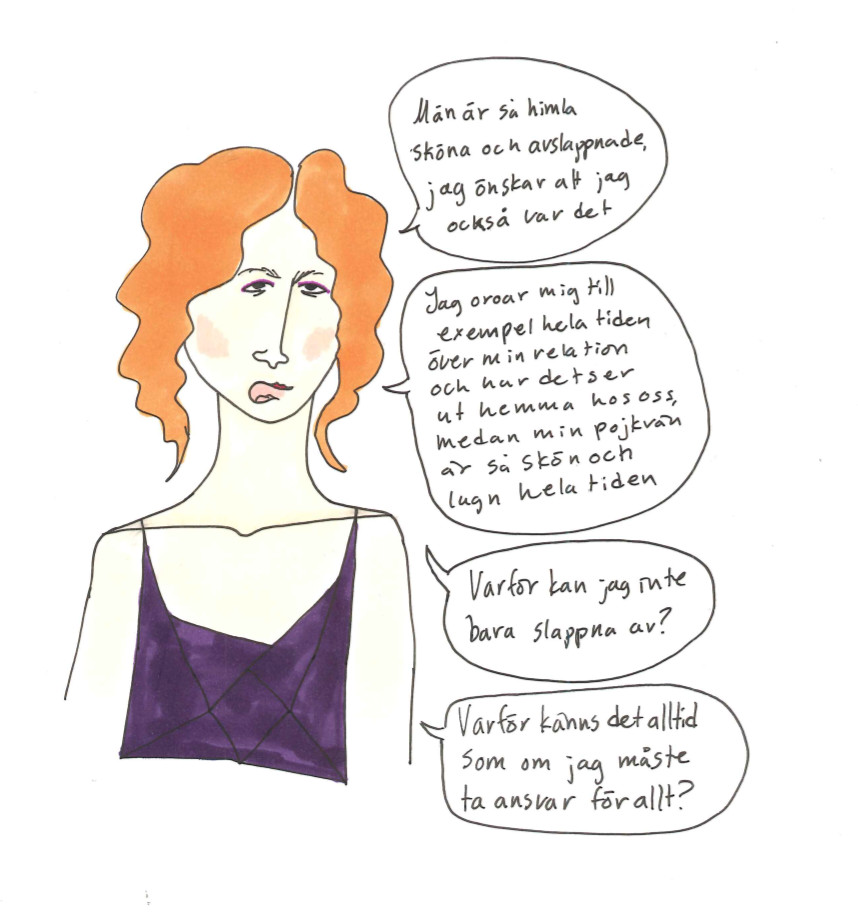 Män är så himla
sköna och avslappnade,
jag önskar att jag
också var det
Jag oroar mig till
exempel hela tiden
över min relation
och hur det ser
ut hemma hos oss,
medan min pojkvän
är så skön och
lugn hela tiden
Varför kan jag inte
bara slappna av?
Varför känns det alltid
som om jag måste
ta ansvar för allt?